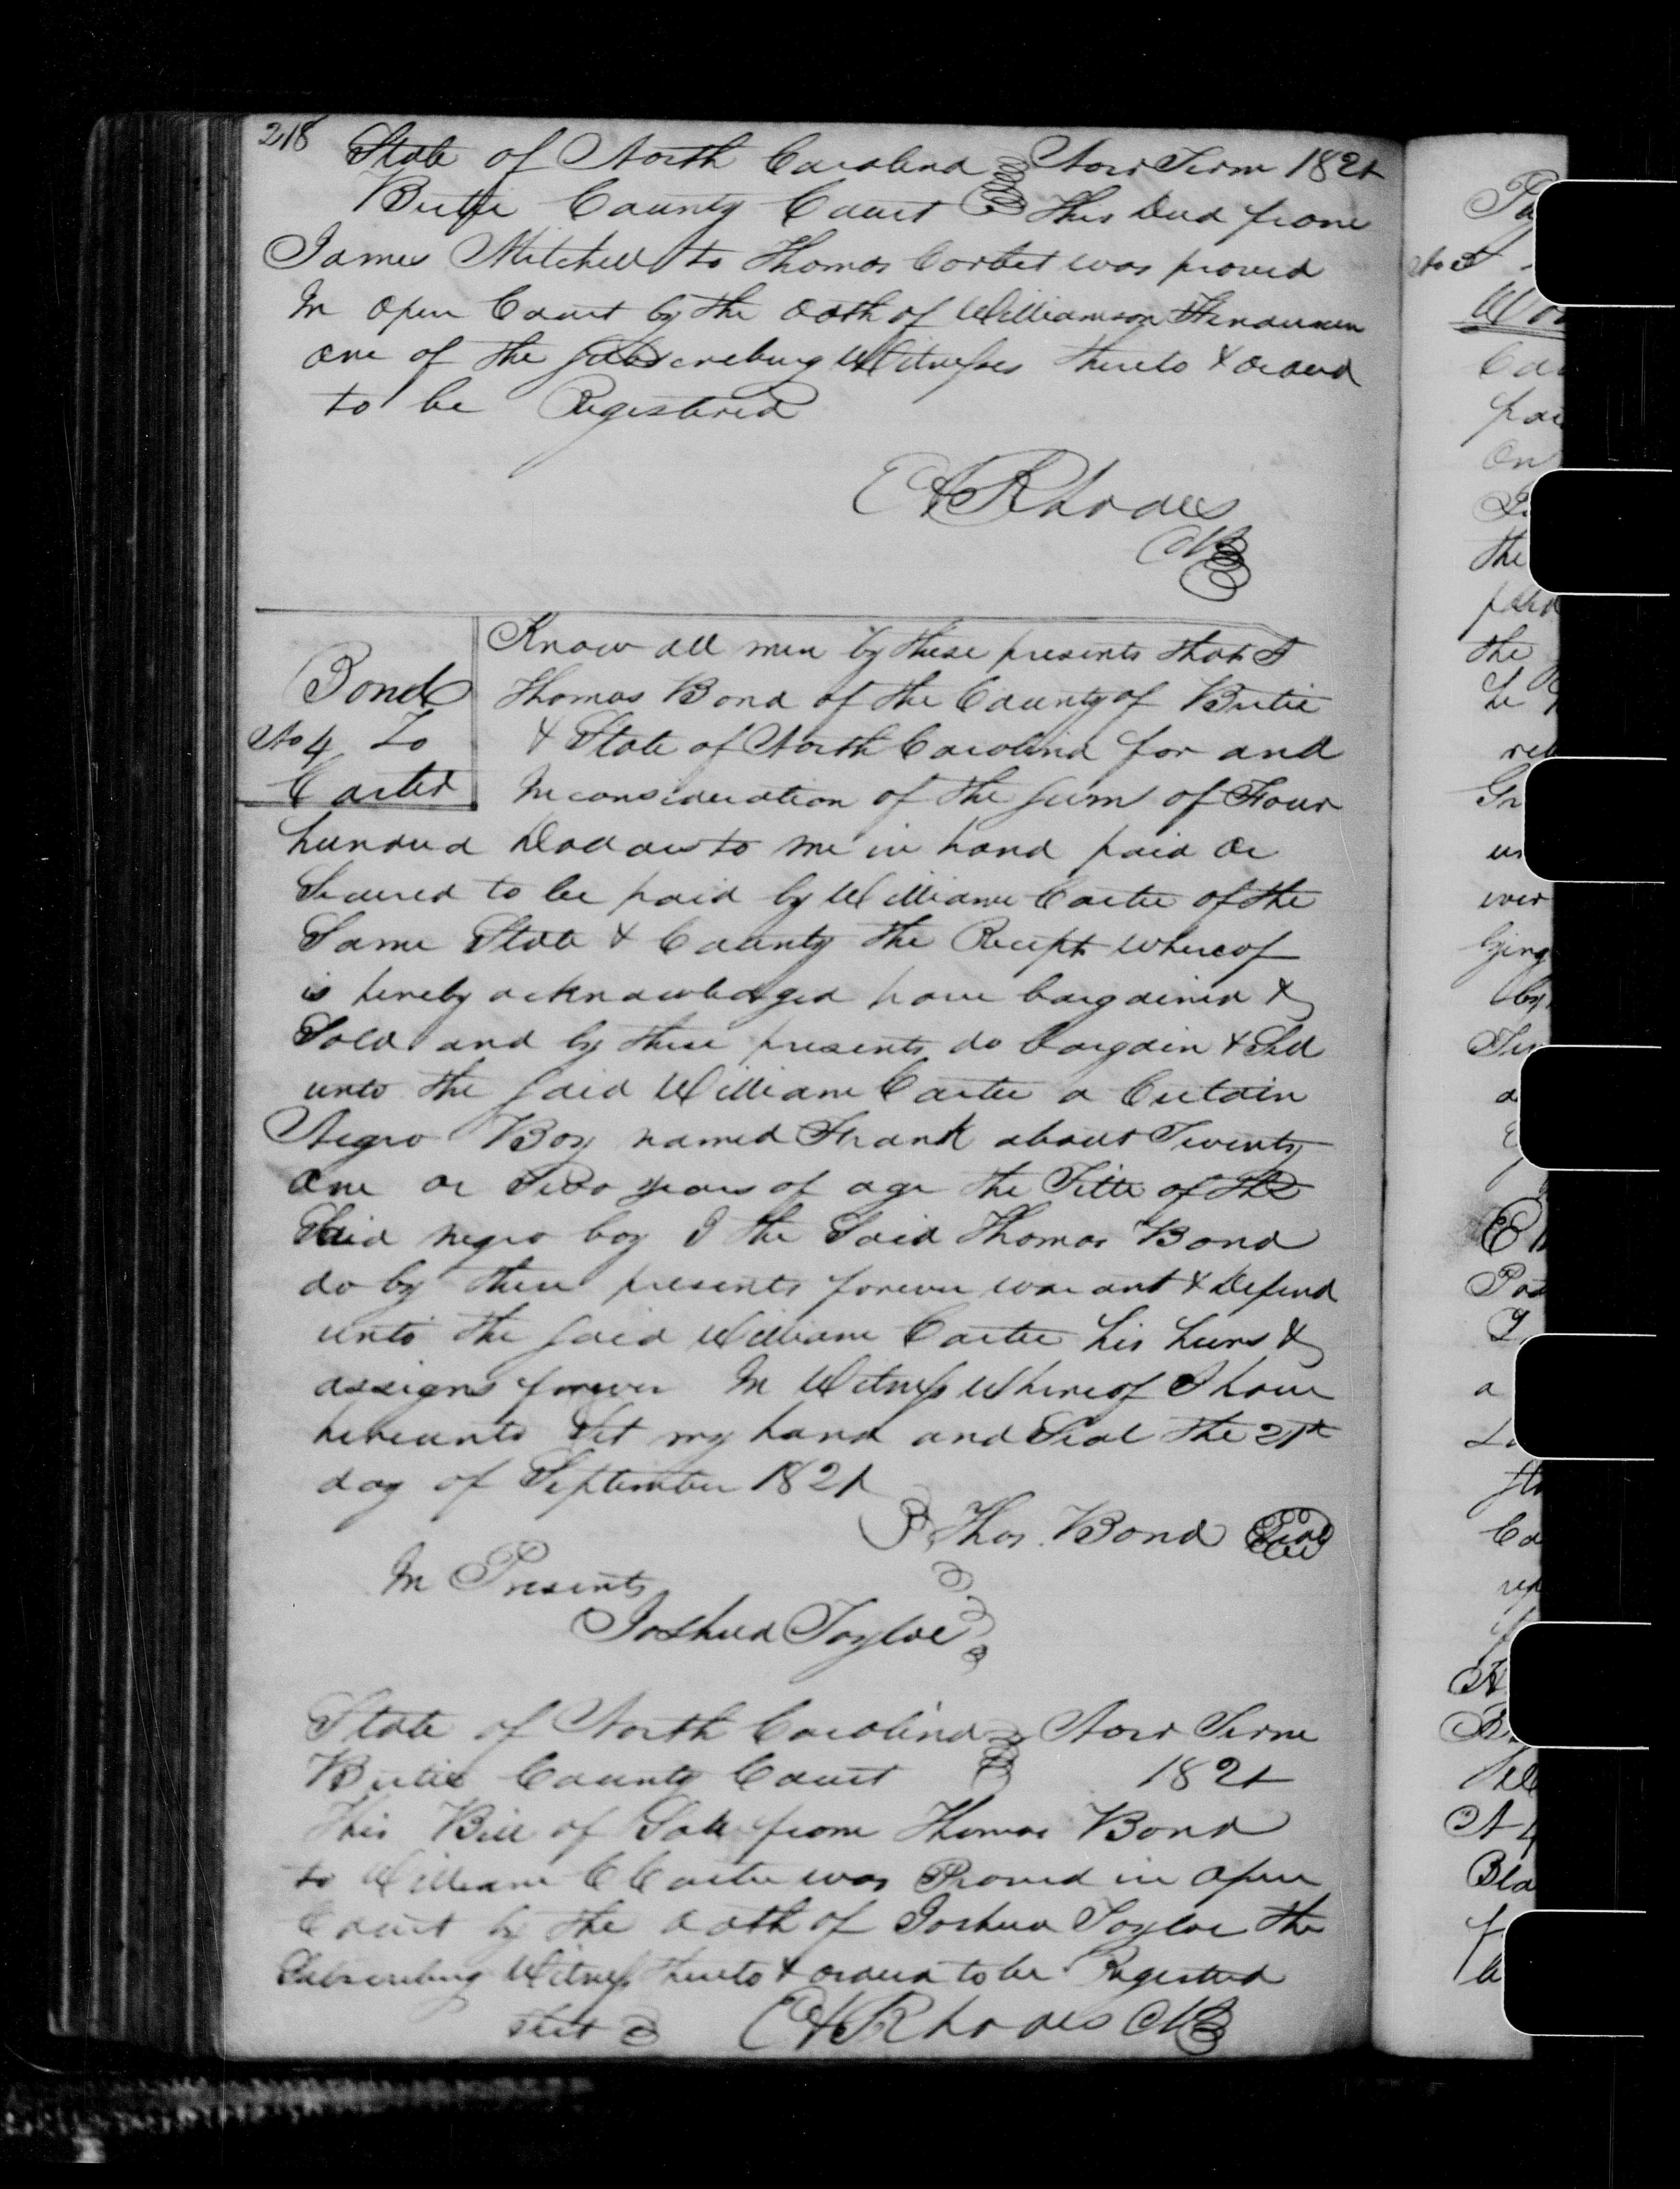 218
State of North Carolina Nov Term 1821
Bertie County Court This Deed from
James Mitchell to Thomas Corbet was proved
In open Court by the oath of Williamson
one of the Subscribing Witnesses thereto & ordered
to be Registered
EA Rhodes
Clk
Know all men by these presents that I
Bond
Thomas Bond of the County of Bertie
No 4 To
& State of North Carolina for and
Carter
In consideration of the sum of Four
hundred Dollars to me in hand paid or
Secured to be paid by William Carter of the
Same State & County the Receipt whereof
is hereby acknowledged have bargained &
Sold and by these presents do bargain & Sell
unto the said William Carter a Certain
Negro Boy named Frank about Twenty
One or Two years of age the Title of the
Said negro boy I the Said Thomas Bond
do by these presents forever warant & Defend
unto the said William Carter his heirs &
assigns forever In Witness Whereof I have
hereunto Set my hand and Seal the 21st
day of September 1821
Thos. Bond Seal
In Presents
Joshua Tayloe
State of North Carolina Nov Term
Bertie County Court 1821
This Bill of Sale from Thomas Bond
to William C Carter was Proved in open
Court by the oath of Joshua Tayloe the
Subscribing Witness thereto & ordered to be Registered
Test EA Rhodes Clk
No 5
the
the
ever
lying
by